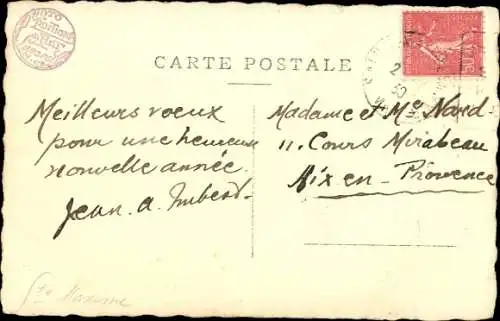 PHOTO
CARTE POSTALE
Meilleurs voeux
pour une heureuse
nouvelle année.
Jean. A. Imbert.
Madame et Mr Nard
11. Cours Mirabeau
Aix en - Provence
Ste Maxime